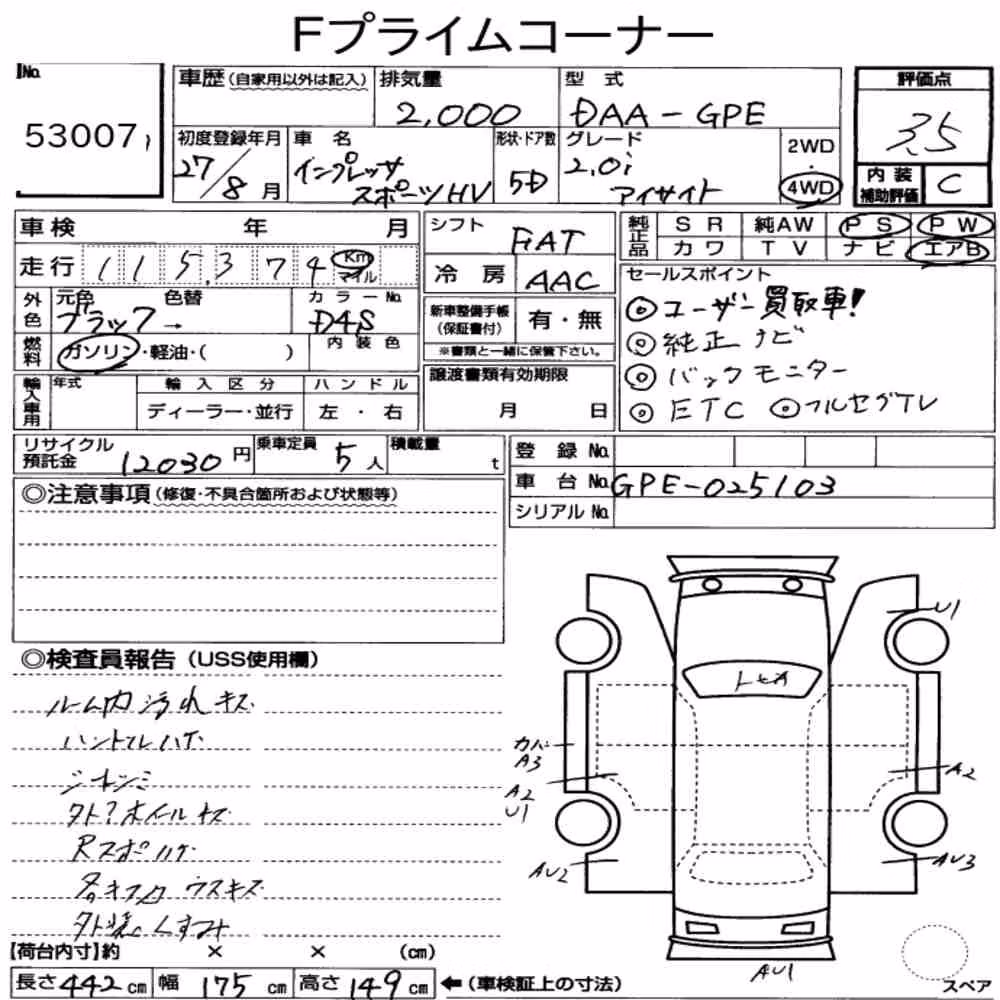 Fプライムコーナー
No.
53007
車歴(自家用以外は記入)
排気量
2,000
型式
DAA-GPE
評価点
3.5
初度登録年月
27/8月
車名
インプレッサ
スポーツHV
形状・ドア数
5D
グレード
2.0i
アイサイト
2WD
・
4WD
内装
補助評価
C
車検 年 月
シフト
FAT
純正品
SR 純AW PS PW
カワ TV ナビ エアB
走行 115,374 Km
マイル
冷房 AAC
セールスポイント
◎ユーザー買取車!
◎純正ナビ
◎バックモニター
◎ETC ◎フルセグTV
外色
元色 色替
ブラック→
カラーNo.
D4S
新車整備手帳
(保証書付)
有・無
※書類と一緒に保管下さい。
燃料
ガソリン・軽油・( )
内装色
譲渡書類有効期限
月 日
輸入車用
年式
輸入区分
ディーラー・並行
ハンドル
左・右
リサイクル
預託金
12030円
乗車定員
5人
積載量
t
登録No.
車台No. GPE-025103
シリアルNo.
◎注意事項(修復・不具合箇所および状態等)
◎検査員報告(USS使用欄)
ルーム内汚れキズ
ハンドルハゲ
シートシミ
タイヤホイールキズ
Rスポハゲ
各キズ凹 ウスキズ
外装くすみ
U1
トヒA
カバー
A3
A2
U1
A2
AU2
AU3
AU1
スペア
【荷台内寸】約 × × (cm)
長さ442cm 幅175cm 高さ149cm ←(車検証上の寸法)